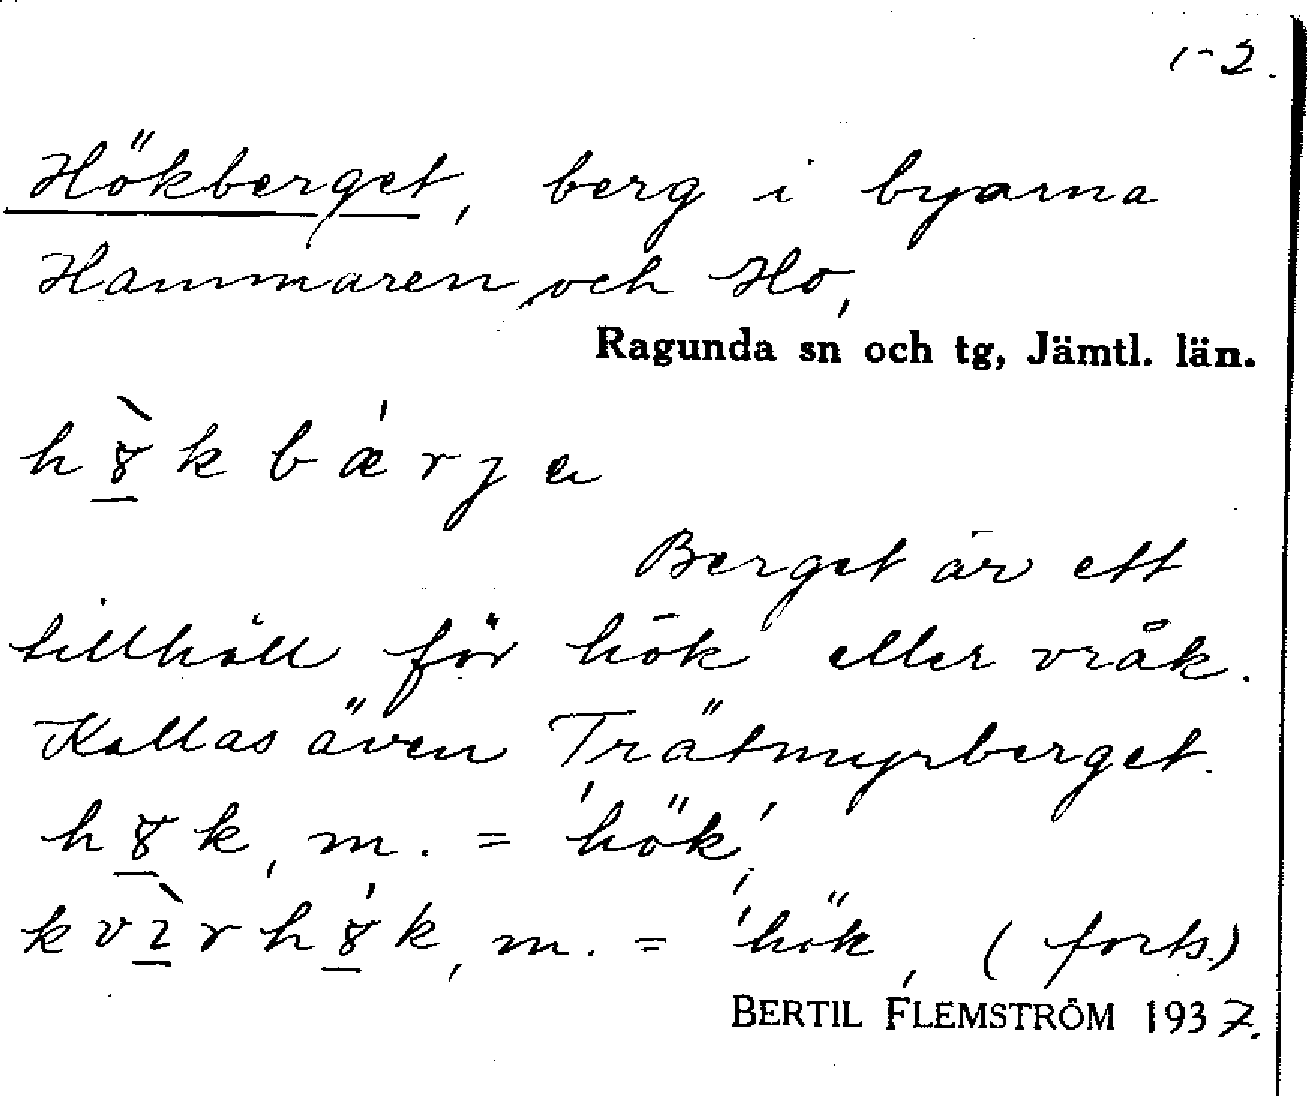 1-2.
Hökberget, berg i byarna
Hammaren och Ho,
Ragunda sn och tg, Jämtl. län.
h ȣ̀ k b ǽ r j a
Berget är ett
tillhåll för hök eller vråk.
Kallas även Trätmyrberget.
h ȣ k, m. = 'hök',
k v ì r h ȣ́ k, m. = 'hök, (forts.)
BERTIL FLEMSTRÖM 1937.